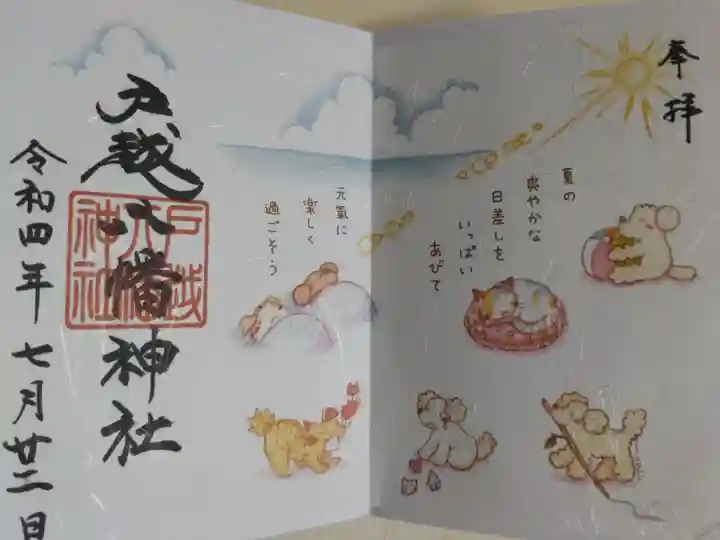 奉拝
夏の
爽やかな
日差しを
いっぱい
あびて
元氣に
楽しく
過ごそう
戸越八幡神社
戸越
八幡
神社
令和四年七月廿二日